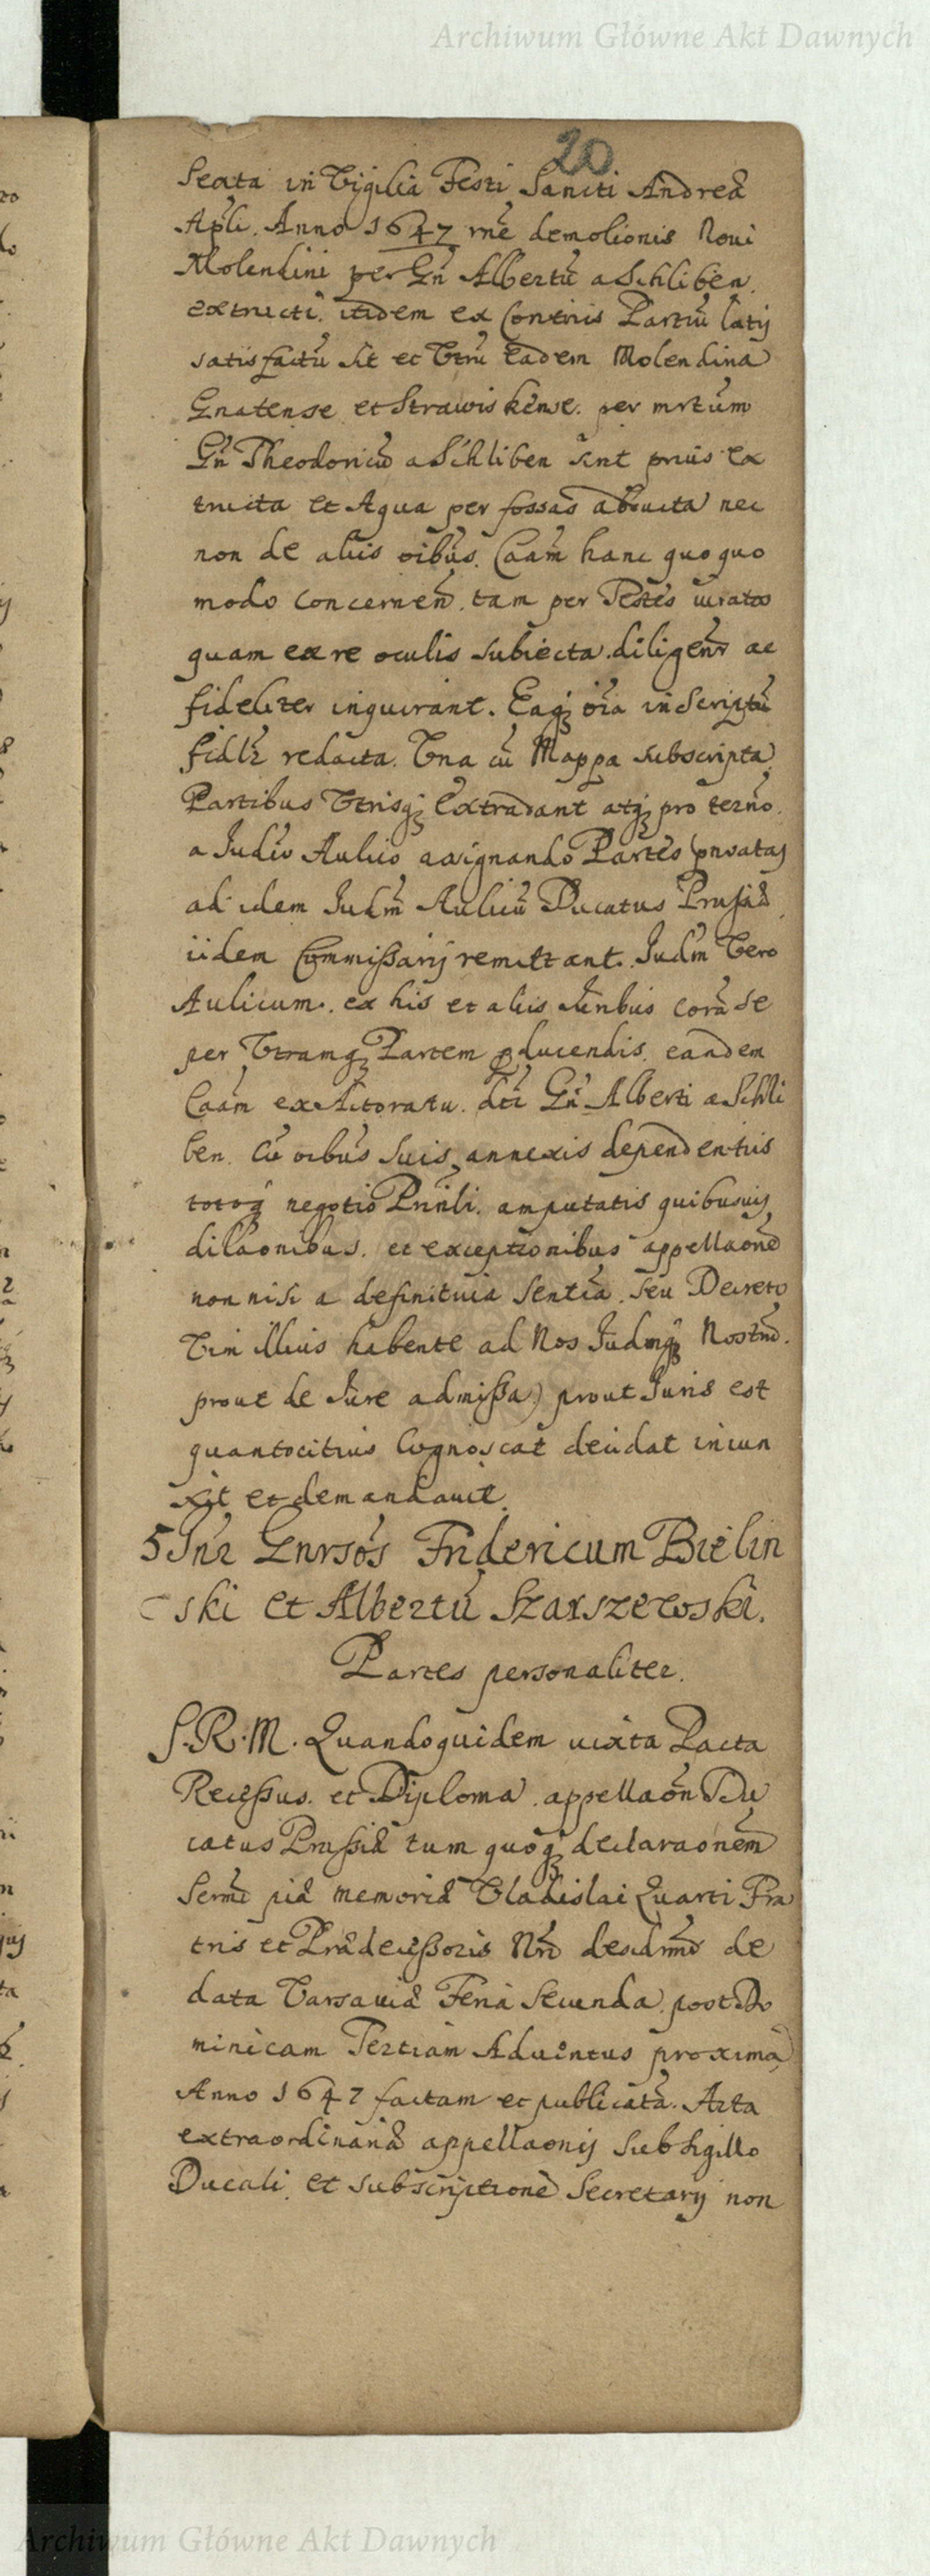 Archiwum Główne Akt Dawnych
20
Sexta in Vigilia Festi Sancti Andreæ
Apli. Anno 1647 rñe demolionis Noui
Molendini per Gñ Albertũ a Schliben
extructi. itidem ex Contris Partiũ latij
satisfactũ sit et Vtrũ Eadem Molendina
Gnatense et Strawiskense. per mrtum
Gñ Theodoricũ a Schliben sint prius ex
tructa et Aqua per fossas abducta nec
non de aliis oibus. Caam hanc quoquo
modo concerneñ. tam per Testes iuratos
quam ex re oculis subiecta. diligenr ac
fideliter inquirant. Eaqꝫ oĩa in Scriptũ
fidlr redacta. Vna cũ Mappa subscripta
Partibus Vtrisqꝫ Extradant atqꝫ pro terno.
a Judio Aulico assignando Partes privatas
ad idem Judm̃ Aulicũ Ducatus Prussiæ
iidem Commissarij remittant. Judm Vero
Aulicum. ex his et aliis Juribus corã se
per Vtramqꝫ Partem ꝓducendis. eandem
Caam ex Actoratu. dti Gñ Alberti a Schli
ben. Cũ oibus suis annexis dependentiis
totoqꝫ negotio Prinli. amputatis quibusuis
dilaonibus. et exceptionibus appellaone
non nisi a definitiua Sentia. seu Decreto
Vim illius habente ad Nos Judmqꝫ Nostrũ.
prout de Jure admissa) prout Juris est
quantocitius Cognoscat decidat iniun
xit et demandauit.
5 Intr Gnrsos Fridericum Bielin
ski et Albertũ Szarszewski.
Partes personaliter.
S. R. M. Quandoquidem iuxta Pacta
Recessus. et Diploma. appellaon Du
catus Prussiæ tum quoqꝫ declaraonem
Sermi piæ memoriæ Vladislai Quarti Fra
tris et Prædecessoris Nri desdmi de
data Varsauiæ Feria Secunda. post Do
minicam Tertiam Aduentus proximã
Anno 1647 factam et publicatã. Acta
extraordinariæ appellaonis sub Sigillo
Ducali. et subscriptione Secretarij non
Archiwum Główne Akt Dawnych